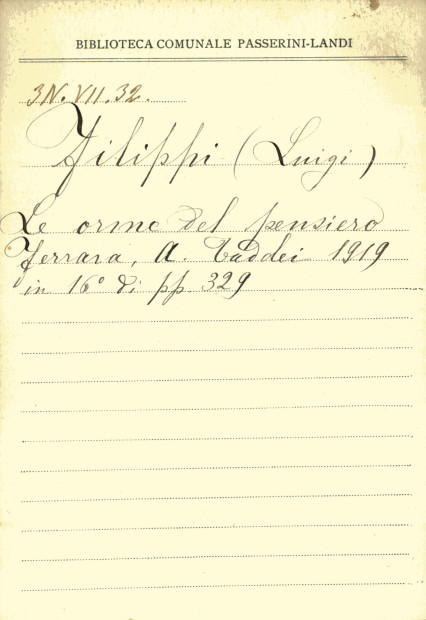 BIBLIOTECA COMUNALE PASSERINI-LANDI
3N.VII.32.
Filippi (Luigi)
Le orme del pensiero
Ferrara, A. Taddei 1919
in 16° di pp. 329